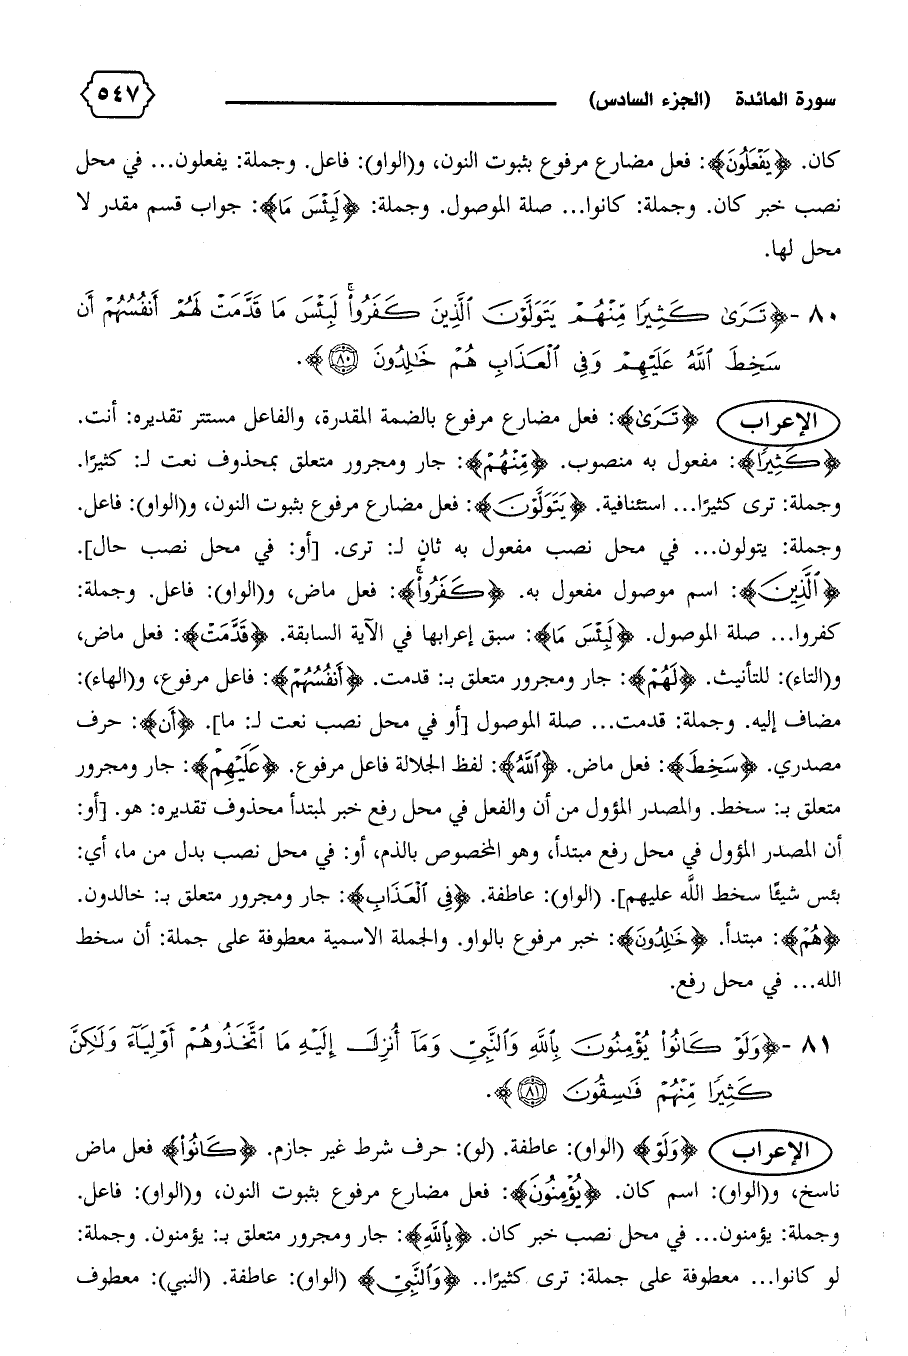 سورة المائدة (الجزء السادس) ٥٤٧
كان. ﴿يَفْعَلُونَ﴾: فعل مضارع مرفوع بثبوت النون، و(الواو): فاعل. وجملة: يفعلون... في محل
نصب خبر كان. وجملة: كانوا... صلة الموصول. وجملة: ﴿لَبِئْسَ مَا﴾: جواب قسم مقدر لا
محل لها.
٨٠ -﴿تَرَىٰ كَثِيرًا مِّنْهُمْ يَتَوَلَّوْنَ الَّذِينَ كَفَرُواْ لَبِئْسَ مَا قَدَّمَتْ لَهُمْ أَنفُسُهُمْ أَن
سَخِطَ ٱللَّهُ عَلَيْهِمْ وَفِي ٱلْعَذَابِ هُمْ خَٰلِدُونَ ٨٠﴾.
الإعراب ﴿تَرَىٰ﴾: فعل مضارع مرفوع بالضمة المقدرة، والفاعل مستتر تقديره: أنت.
﴿كَثِيرًا﴾: مفعول به منصوب. ﴿مِّنْهُمْ﴾: جار ومجرور متعلق بمحذوف نعت لـ: كثيرًا.
وجملة: ترى كثيرًا... استئنافية. ﴿يَتَوَلَّوْنَ﴾: فعل مضارع مرفوع بثبوت النون، و(الواو): فاعل.
وجملة: يتولون... في محل نصب مفعول به ثانٍ لـ: ترى. [أو: في محل نصب حال].
﴿ٱلَّذِينَ﴾: اسم موصول مفعول به. ﴿كَفَرُواْ﴾: فعل ماض، و(الواو): فاعل. وجملة:
كفروا... صلة الموصول. ﴿لَبِئْسَ مَا﴾: سبق إعرابها في الآية السابقة. ﴿قَدَّمَتْ﴾: فعل ماض،
و(التاء): للتأنيث. ﴿لَهُمْ﴾: جار ومجرور متعلق بـ: قدمت. ﴿أَنفُسُهُمْ﴾: فاعل مرفوع، و(الهاء):
مضاف إليه. وجملة: قدمت... صلة الموصول [أو في محل نصب نعت لـ: ما]. ﴿أَن﴾: حرف
مصدري. ﴿سَخِطَ﴾: فعل ماض. ﴿ٱللَّهُ﴾: لفظ الجلالة فاعل مرفوع. ﴿عَلَيْهِمْ﴾: جار ومجرور
متعلق بـ: سخط. والمصدر المؤول من أن والفعل في محل رفع خبر لمبتدأ محذوف تقديره: هو. [أو:
أن المصدر المؤول في محل رفع مبتدأ، وهو المخصوص بالذم، أو: في محل نصب بدل من ما، أي:
بئس شيئًا سخط اللَّه عليهم]. (الواو): عاطفة. ﴿فِي ٱلْعَذَابِ﴾: جار ومجرور متعلق بـ: خالدون.
﴿هُمْ﴾: مبتدأ. ﴿خَٰلِدُونَ﴾: خبر مرفوع بالواو. والجملة الاسمية معطوفة على جملة: أن سخط
الله... في محل رفع.
٨١ -﴿وَلَوْ كَانُواْ يُؤْمِنُونَ بِٱللَّهِ وَٱلنَّبِيِّ وَمَآ أُنزِلَ إِلَيْهِ مَا ٱتَّخَذُوهُمْ أَوْلِيَآءَ وَلَٰكِنَّ
كَثِيرًا مِّنْهُمْ فَٰسِقُونَ ٨١﴾.
الإعراب ﴿وَلَوْ﴾ (الواو): عاطفة. (لو): حرف شرط غير جازم. ﴿كَانُواْ﴾ فعل ماض
ناسخ، و(الواو): اسم كان. ﴿يُؤْمِنُونَ﴾: فعل مضارع مرفوع بثبوت النون، و(الواو): فاعل.
وجملة: يؤمنون... في محل نصب خبر كان. ﴿بِٱللَّهِ﴾: جار ومجرور متعلق بـ: يؤمنون. وجملة:
لو كانوا... معطوفة على جملة: ترى كثيرًا.. ﴿وَٱلنَّبِيِّ﴾ (الواو): عاطفة. (النبي): معطوف